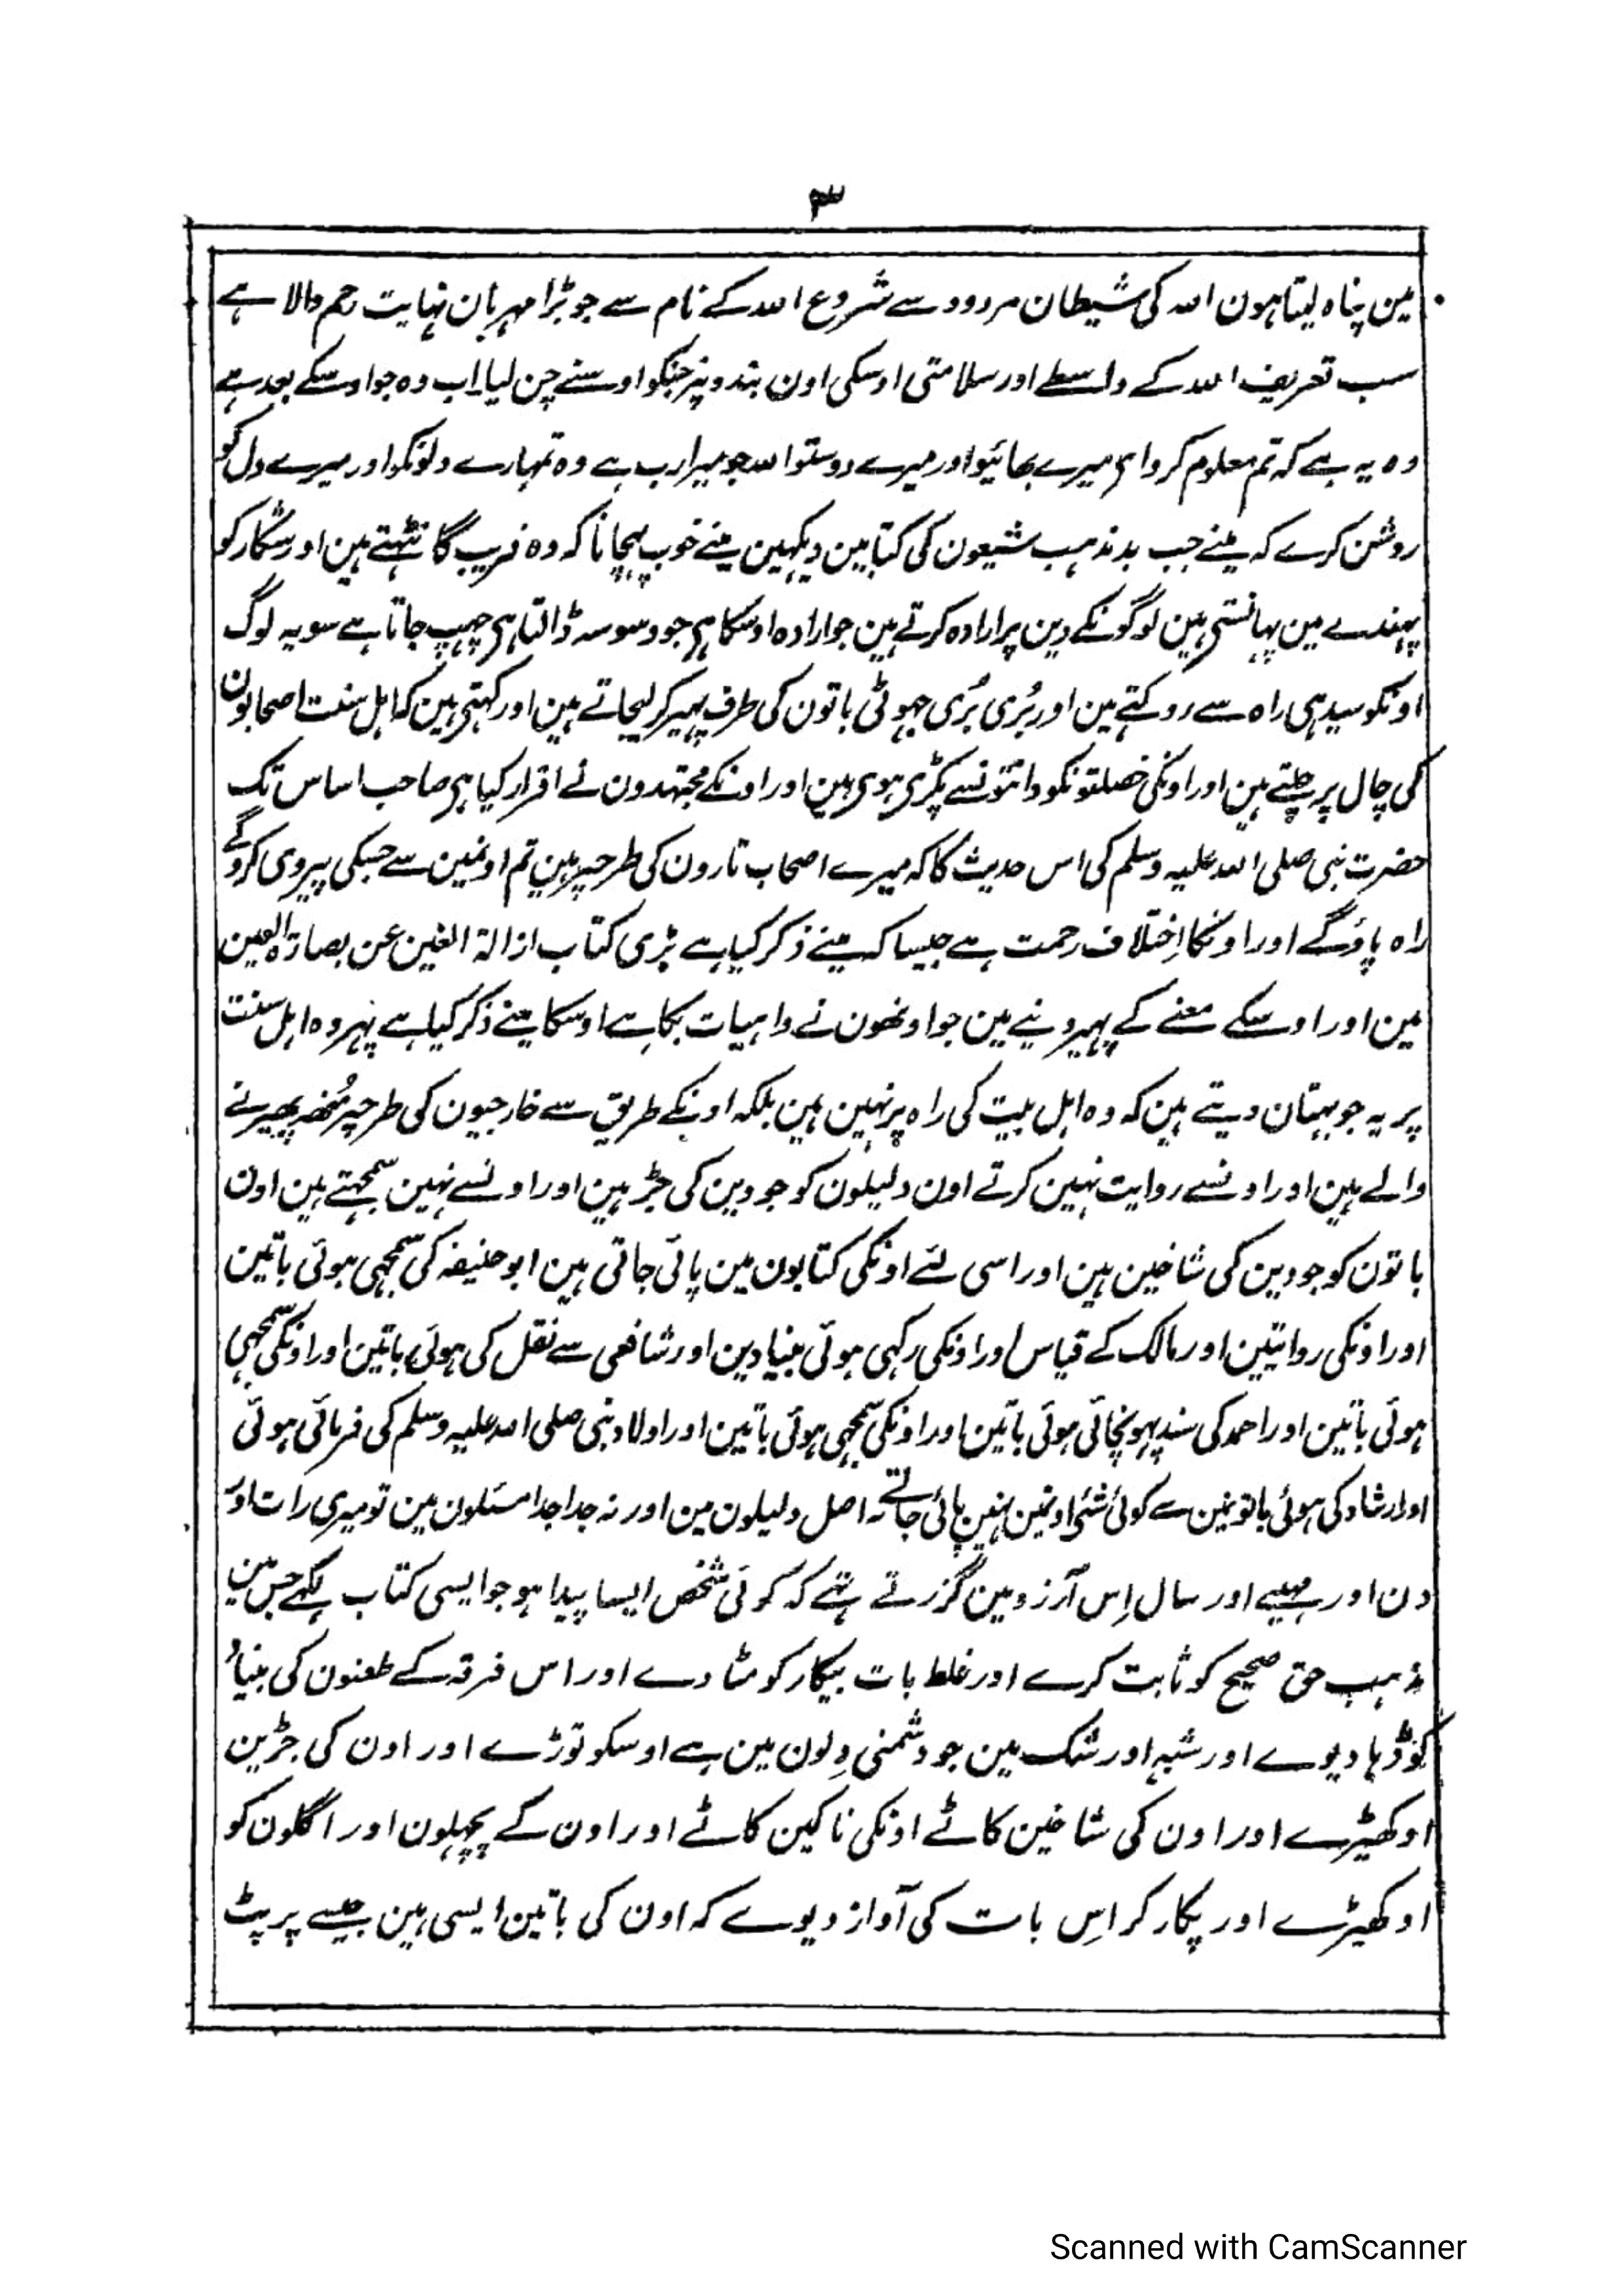 ۳
مین پناہ لیتا ہون اللہ کی شیطان مردود سے شروع اللہ کے نام سے جو بڑا مہربان نہایت رحم والا ہے
سب تعریف اللہ کے واسطے اور سلامتی اوسکی اون بندونپر جنکو اوسنے چن لیا اب وہ جو اوسکے بعد ہے
وہ یہ ہے کہ تم معلوم کرو ای میرے بھائیو اور میرے دوستو اللہ جو میرا رب ہے وہ تمہارے دلونکو اور میرے دل کو
روشن کرے کہ مینے جب بدمذہب شیعون کی کتابین دیکہین مینے خوب پہچانا کہ وہ فریب گانٹھتے ہین اور شکار کو
پہندے مین پہانستی ہین لوگونکے دین پر ارادہ کرتے ہین جو ارادہ اوسکا ہی جو وسوسہ ڈالتا ہی چہپ جاتا ہے سو یہ لوگ
اونکو سیدہی راہ سے روکتے ہین اور بُری بُری جہوٹی باتون کی طرف پہیر کر لیجاتے ہین اور کہتی ہین کہ اہل سنت اصحابون
کی چال پر چلتے ہین اور اونکی خصلتونکو دانتونسے پکڑی ہوی ہین اور اونکے مجتہدون نے اقرار کیا ہی صاحب اساس تک
حضرت نبی صلی اللہ علیہ وسلم کی اس حدیث کا کہ میرے اصحاب تارون کی طرحپر ہین تم اونمین سے جسکی پیروی کروگے
راہ پاؤگے اور اونکا اِختلاف رحمت ہے جیسا کہ مینے ذکر کیا ہے بڑی کتاب ازالۃ الغین عن بصارۃ العین
مین اور اوسکے معنے کے پہیر دینے مین جو اونھون نے واہیات بکا ہے اوسکا مینے ذکر کیا ہے پہر وہ اہل سنت
پر یہ جو بہتان دیتے ہین کہ وہ اہل بیت کی راہ پر نہین ہین بلکہ اونکے طریق سے خارجیون کی طرحپر مُنھ پھیرنے
والے ہین اور اونسے روایت نہین کرتے اون دلیلون کو جو دین کی جڑ ہین اور اونسے نہین سمجہتے ہین اون
باتون کو جو دین کی شاخین ہین اور اسی لئے اونکی کتابون مین پائی جاتی ہین ابو حنیفہ کی سمجہی ہوئی باتین
اور اونکی روایتین اور مالک کے قیاس اور اونکی رکہی ہوئی بنیادین اور شافعی سے نقل کی ہوئی باتین اور اونکی سمجہی
ہوئی باتین اور احمد کی سند پہونچائی ہوئی باتین اور اونکی سمجہی ہوئی باتین اور اولاد نبی صلی اللہ علیہ وسلم کی فرمائی ہوئی
اور ارشاد کی ہوئی باتونمین سے کوئی شئی اونمین نہین پائی جاتے نہ اصل دلیلون مین اور نہ جدا جدا مسئلون مین تو میری رات اور
دن اور مہینے اور سال اِس آرزو مین گزرتے تہے کہ کوئی شخص ایسا پیدا ہو جو ایسی کتاب لکہے جس مین
مذہب حق صحیح کو ثابت کرے اور غلط بات بیکار کو مٹا دے اور اس فرقہ کے طعنون کی بنیاد
کو ڈہا دیوے اور شبہ اور شک مین جو دشمنی دِلون مین ہے اوسکو توڑے اور اون کی جڑین
اوکھیڑے اور اون کی شاخین کاٹے اونکی ناکین کاٹے اور اون کے پچہلون اور اگلون کو
اوکھیڑے اور پکار کر اِس بات کی آواز دیوے کہ اون کی باتین ایسی ہین جیسے پرپٹ
Scanned with CamScanner